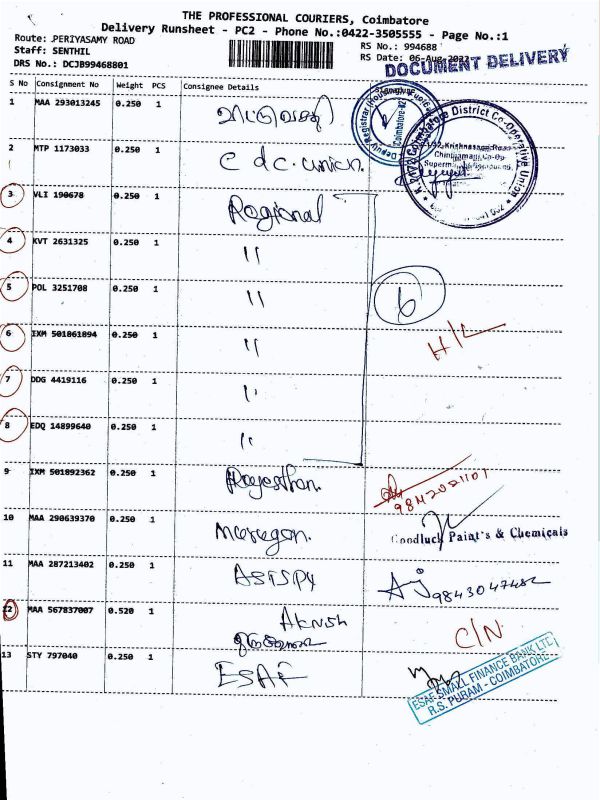 THE PROFESSIONAL COURIERS, Coimbatore
Delivery Runsheet - PC2 - Phone No.:0422-3505555 - Page No.:1
Route: PERIYASAMY ROAD
RS No.: 994688
Staff: SENTHIL
RS Date: 06-Aug-2022
DRS No.: DCJB99468801
DOCUMENT DELIVERY
S No Consignment No Weight PCS Consignee Details
1 MAA 293013245 0.250 1
Coimbatore
2 MTP 1173033 0.250 1 C d c. union.
Coimbatore District Co-Operative Union
3 VLI 190678 0.250 1 Rogional
4 KVT 2631325 0.250 1 "
5 POL 3251708 0.250 1 "
6
6 IXM 501861894 0.250 1 "
H/L
7 DDG 4419116 0.250 1 "
8 EDQ 14899640 0.250 1 "
9 IXM 501892362 0.250 1 Rajesthan.
9842021101
10 MAA 290639370 0.250 1 Murugan.
Goodluck Paint's & Chemicals
11 MAA 287213402 0.250 1
12 MAA 567837007 0.520 1
C/N
13 STY 797040 0.250 1 ESAF
ESAF SMALL FINANCE BANK LTD
R.S. PURAM - COIMBATORE